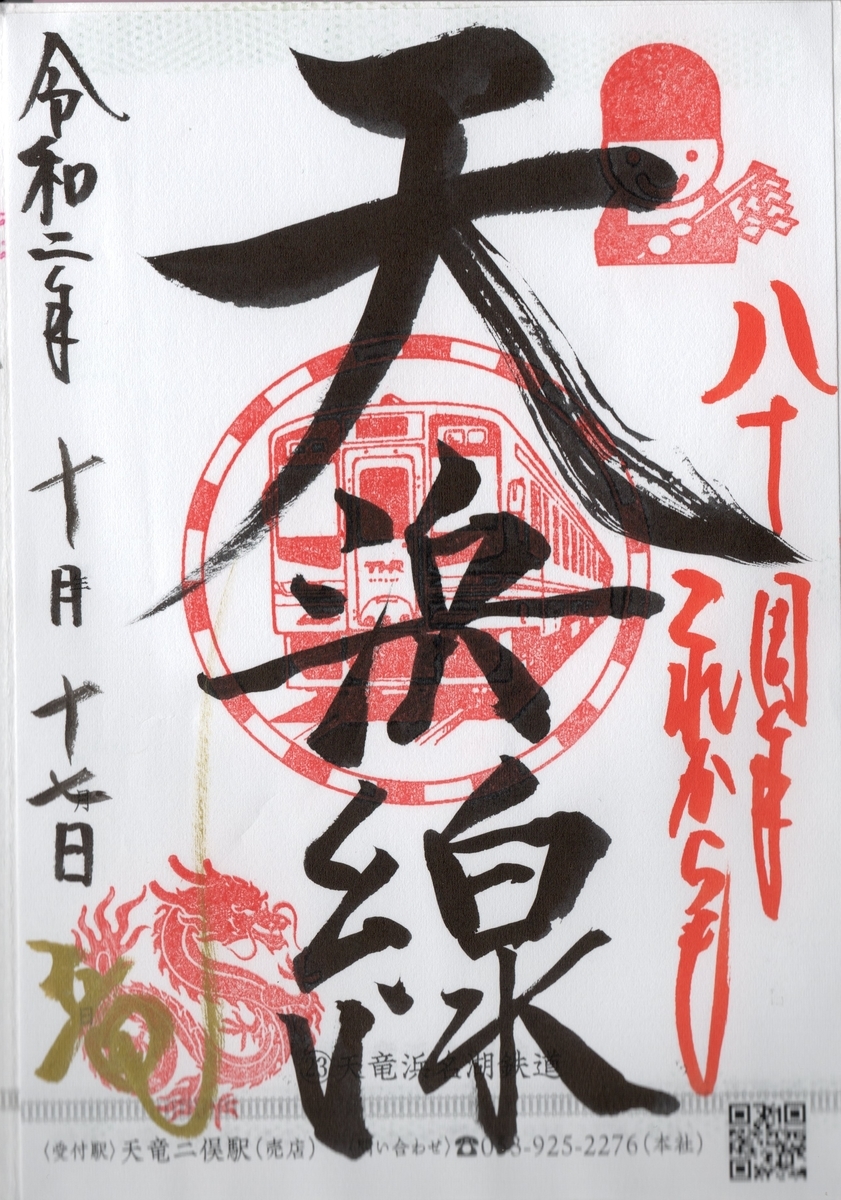 八十周年
これからも
天浜線
令和二年 十月 十七日
THR
㉓天竜浜名湖鉄道
〈受付駅〉天竜二俣駅(売店) 〈問い合わせ〉☎053-925-2276(本社)